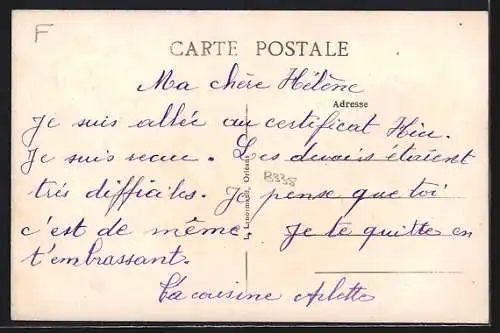 F
CARTE POSTALE
Ma chère Hélène
Adresse
Je suis allée au certificat Hier.
Je suis reçue. Les devoirs étaient
très difficiles. Je pense que toi
B338
c'est de même Je te quitte en
t'embrassant.
Ta cousine Arlette
L. Lenormand, Orléans